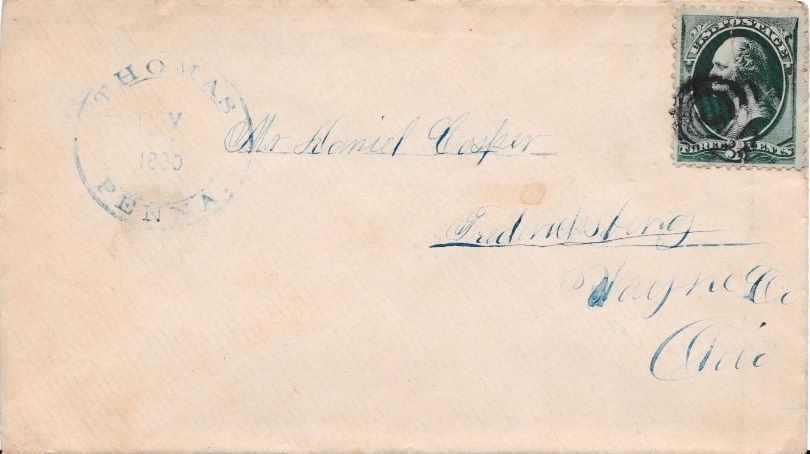 THOMAS
NOV
1880
PENNA.
U.S. POSTAGE
THREE 3 CENTS
Mr Daniel Cosper
Fredericksburg
Wayne Co
Ohio